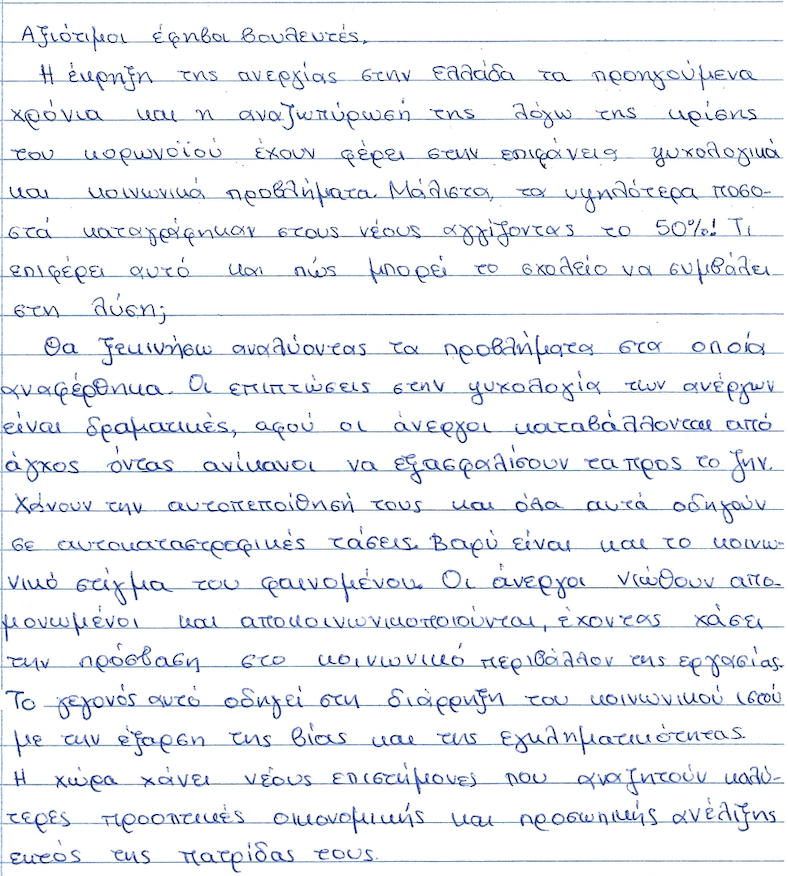 Αξιότιμοι έφηβοι βουλευτές,
Η έκρηξη της ανεργίας στην Ελλάδα τα προηγούμενα
χρόνια και η αναζωπύρωσή της λόγω της κρίσης
του κορωνοϊού έχουν φέρει στην επιφάνεια ψυχολογικά
και κοινωνικά προβλήματα. Μάλιστα, τα υψηλότερα ποσο-
στά καταγράφηκαν στους νέους αγγίζοντας το 50%! Τι
επιφέρει αυτό και πώς μπορεί το σχολείο να συμβάλει
στη λύση;
Θα ξεκινήσω αναλύοντας τα προβλήματα στα οποία
αναφέρθηκα. Οι επιπτώσεις στην ψυχολογία των ανέργων
είναι δραματικές, αφού οι άνεργοι καταβάλλονται από
άγχος όντας ανίκανοι να εξασφαλίσουν τα προς το ζην.
Χάνουν την αυτοπεποίθησή τους και όλα αυτά οδηγούν
σε αυτοκαταστροφικές τάσεις. Βαρύ είναι και το κοινω-
νικό στίγμα του φαινομένου. Οι άνεργοι νιώθουν απο-
μονωμένοι και αποκοινωνικοποιούνται, έχοντας χάσει
την πρόσβαση στο κοινωνικό περιβάλλον της εργασίας.
Το γεγονός αυτό οδηγεί στη διάρρηξη του κοινωνικού ιστού
με την έξαρση της βίας και της εγκληματικότητας.
Η χώρα χάνει νέους επιστήμονες που αναζητούν καλύ-
τερες προοπτικές οικονομικής και προσωπικής ανέλιξης
εκτός της πατρίδας τους.